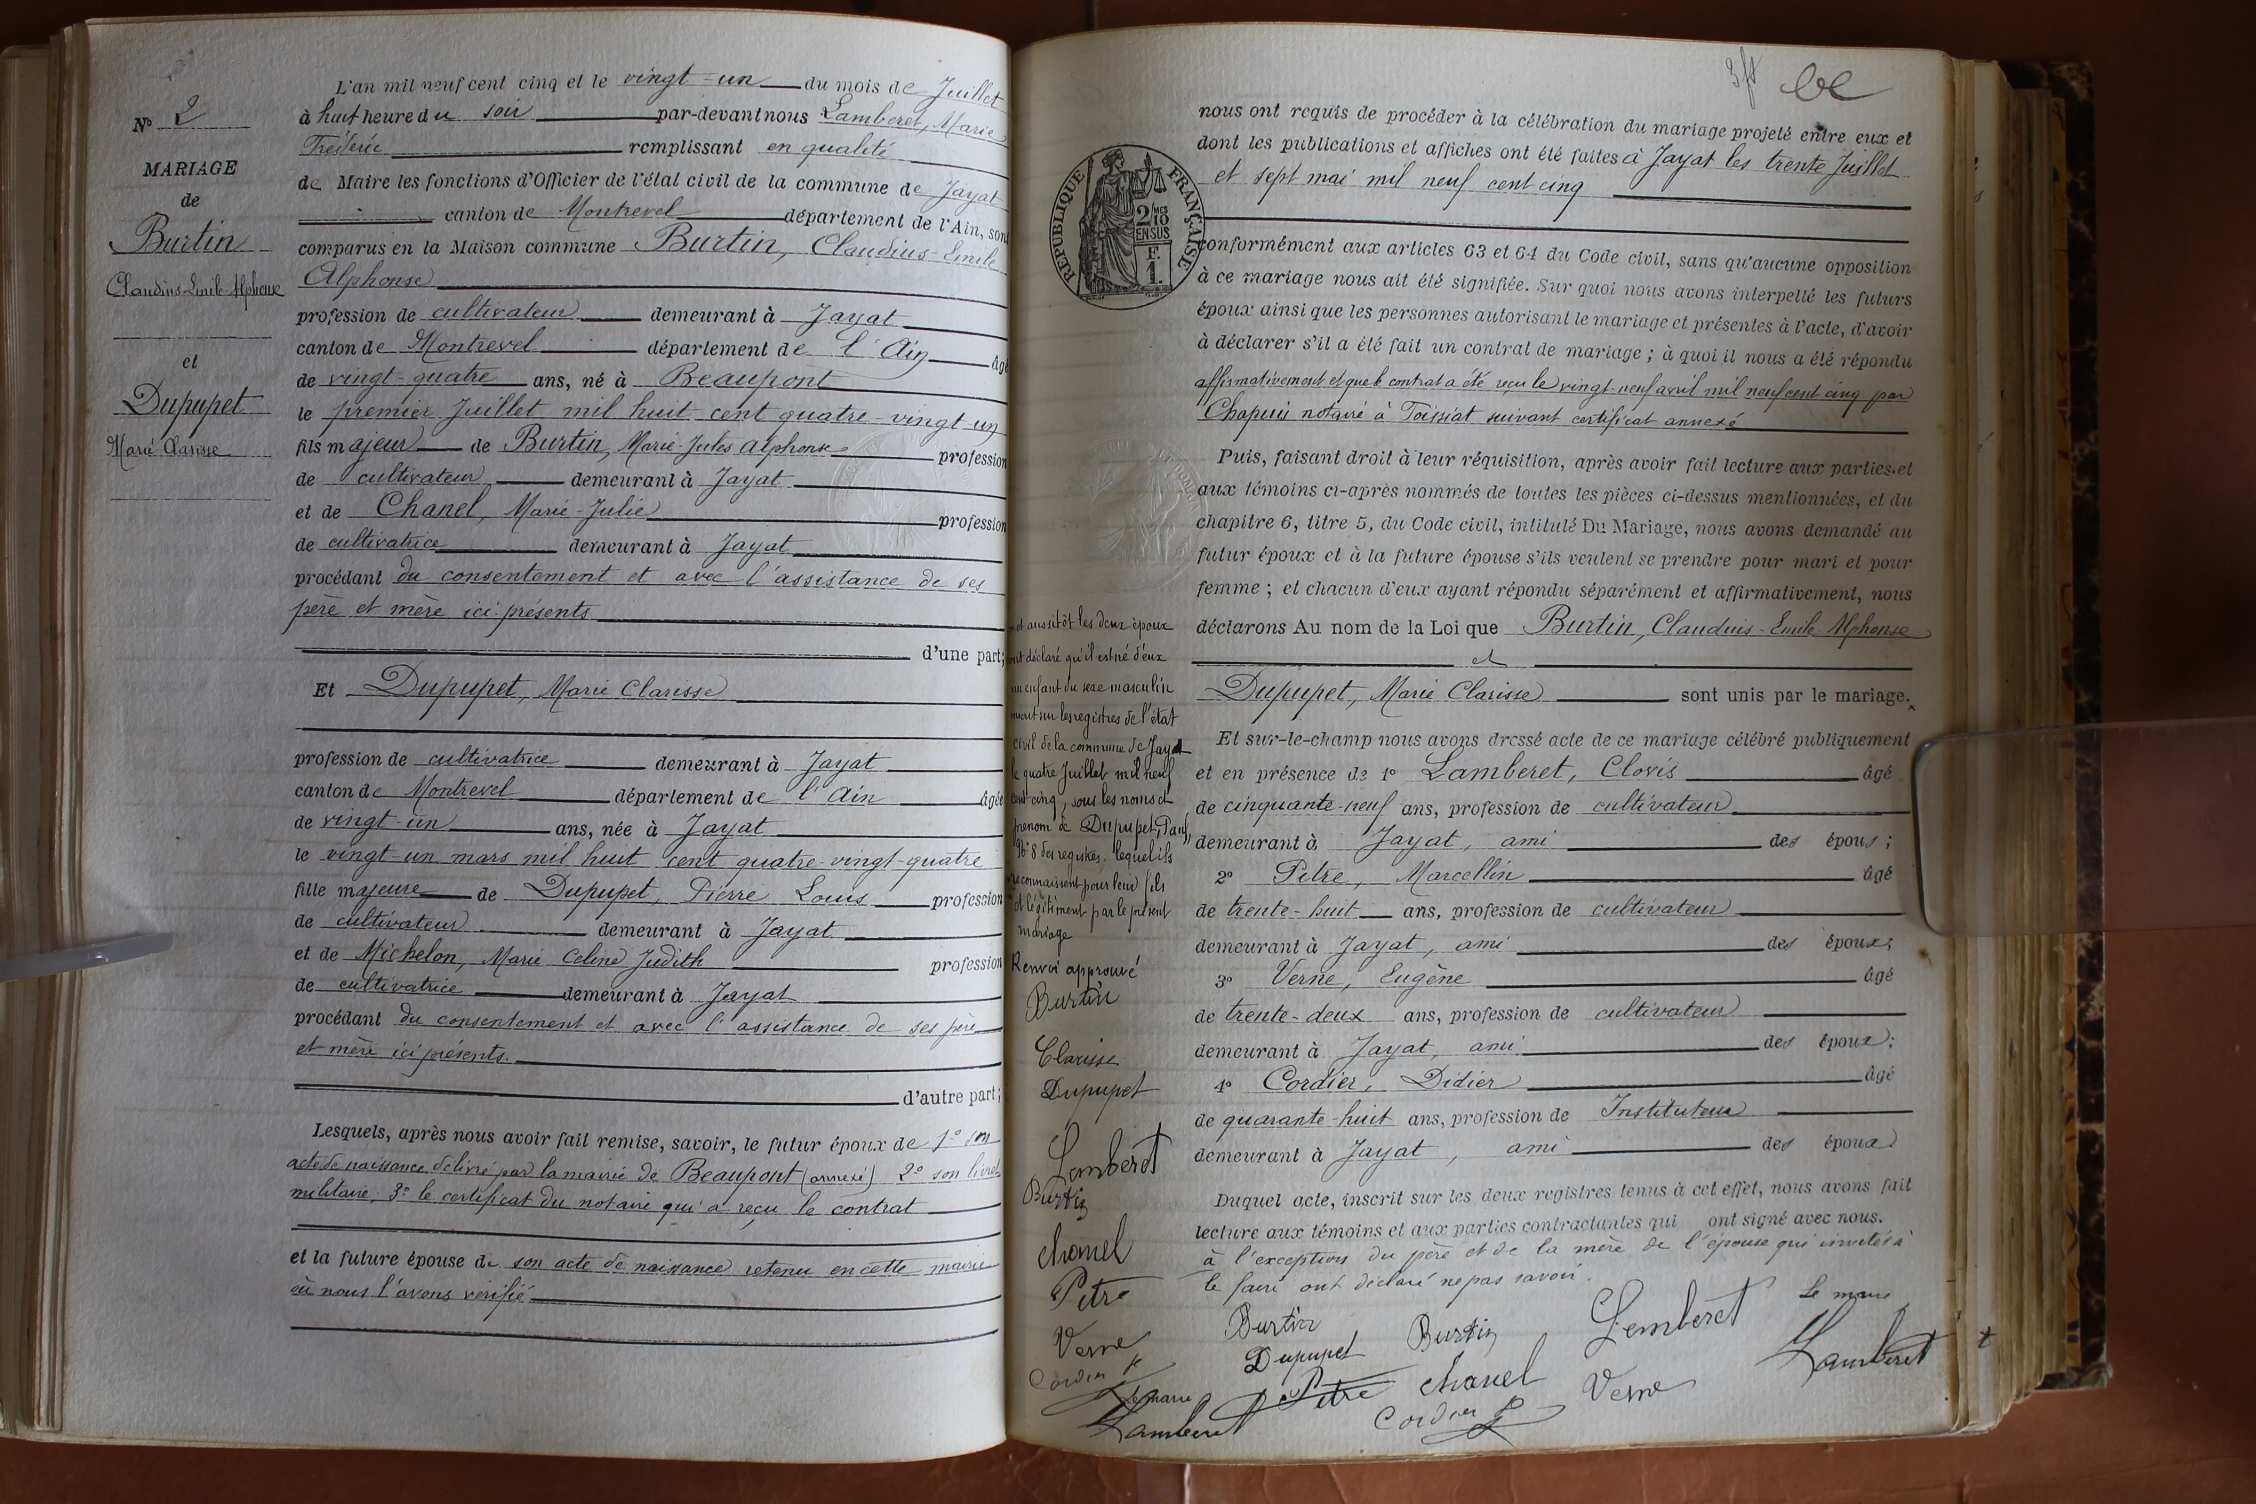 N° 2
MARIAGE
de
Burtin
Claudius-Emile-Alphonse
et
Dupupet
Marie Clarisse
L'an mil neuf cent cinq et le vingt-un du mois de Juillet
à huit heure du soir par-devant nous Lamberet, Marie
Frédéric remplissant en qualité
de Maire les fonctions d'Officier de l'état civil de la commune de Jayat
canton de Montrevel département de l'Ain, sont
comparus en la Maison commune Burtin, Claudius-Emile
Alphonse
profession de cultivateur demeurant à Jayat
canton de Montrevel département de l'Ain âgé
de vingt-quatre ans, né à Beaupont
le premier Juillet mil huit cent quatre-vingt-un
fils majeur de Burtin, Marie-Jules Alphonse profession
de cultivateur demeurant à Jayat
et de Chanel, Marie-Julie profession
de cultivatrice demeurant à Jayat
procédant du consentement et avec l'assistance de ses
père et mère ici présents
d'une part;
Et Dupupet, Marie Clarisse
profession de cultivatrice demeurant à Jayat
canton de Montrevel département de l'Ain âgée
de vingt-un ans, née à Jayat
le vingt-un mars mil huit cent quatre-vingt-quatre
fille majeure de Dupupet, Pierre Louis profession
de cultivateur demeurant à Jayat
et de Michelon, Marie Celine Judith profession
de cultivatrice demeurant à Jayat
procédant du consentement et avec l'assistance de ses père
et mère ici présents.
d'autre part;
Lesquels, après nous avoir fait remise, savoir, le futur époux de 1° son
acte de naissance délivré par la mairie de Beaupont (annexé) 2° son livret
militaire, 3° le certificat du notaire qui a reçu le contrat
et la future épouse de son acte de naissance retenu en cette mairie
où nous l'avons vérifié
REPUBLIQUE FRANÇAISE
2/10MES
EN SUS
F.
1.
nous ont requis de procéder à la célébration du mariage projeté entre eux et
dont les publications et affiches ont été faites à Jayat les trente Juillet
et sept mai mil neuf cent cinq
conformément aux articles 63 et 64 du Code civil, sans qu'aucune opposition
à ce mariage nous ait été signifiée. Sur quoi nous avons interpellé les futurs
époux ainsi que les personnes autorisant le mariage et présentes à l'acte, d'avoir
à déclarer s'il a été fait un contrat de mariage; à quoi il nous a été répondu
affirmativement et que le contrat a été reçu le vingt-neuf avril mil neuf cent cinq par
Chapuis notaire à Toissiat suivant certificat annexé
Puis, faisant droit à leur réquisition, après avoir fait lecture aux parties et
aux témoins ci-après nommés de toutes les pièces ci-dessus mentionnées, et du
chapitre 6, titre 5, du Code civil, intitulé Du Mariage, nous avons demandé au
futur époux et à la future épouse s'ils veulent se prendre pour mari et pour
femme; et chacun d'eux ayant répondu séparément et affirmativement, nous
déclarons Au nom de la Loi que Burtin, Claudius-Emile Alphonse
et
Dupupet, Marie Clarisse sont unis par le mariage.
Et sur-le-champ nous avons dressé acte de ce mariage célébré publiquement
et en présence de 1° Lamberet, Clovis âgé
de cinquante-neuf ans, profession de cultivateur
demeurant à Jayat, ami des époux;
2° Petre, Marcellin âgé
de trente-huit ans, profession de cultivateur
demeurant à Jayat, ami des époux;
3° Verne, Eugène âgé
de trente-deux ans, profession de cultivateur
demeurant à Jayat, ami des époux;
4° Cordier, Didier âgé
de quarante-huit ans, profession de Instituteur
demeurant à Jayat, ami des époux
Duquel acte, inscrit sur les deux registres tenus à cet effet, nous avons fait
lecture aux témoins et aux parties contractantes qui ont signé avec nous.
à l'exception du père et de la mère de l'épouse qui invités à
le faire ont déclaré ne pas savoir.
Burtin Burtin Lemberet Le maire
Dupupet Lamberet
Petre Chanel Verne
Cordier
et aussitôt les deux époux
ont déclaré qu'il est né d'eux
un enfant du sexe masculin
inscrit sur les registres de l'état
civil de la commune de Jayat
le quatre Juillet mil neuf
cent cinq, sous les noms et
prenom de Dupupet, Paul,
N° 8 des registres, lequel ils
reconnaissent pour leur fils
et légitiment par le présent
mariage
Renvoi approuvé
Burtin
Clarisse
Dupupet
Lemberet
Burtin
Chanel
Petre
Verne
Cordier
Le maire
Lamberet